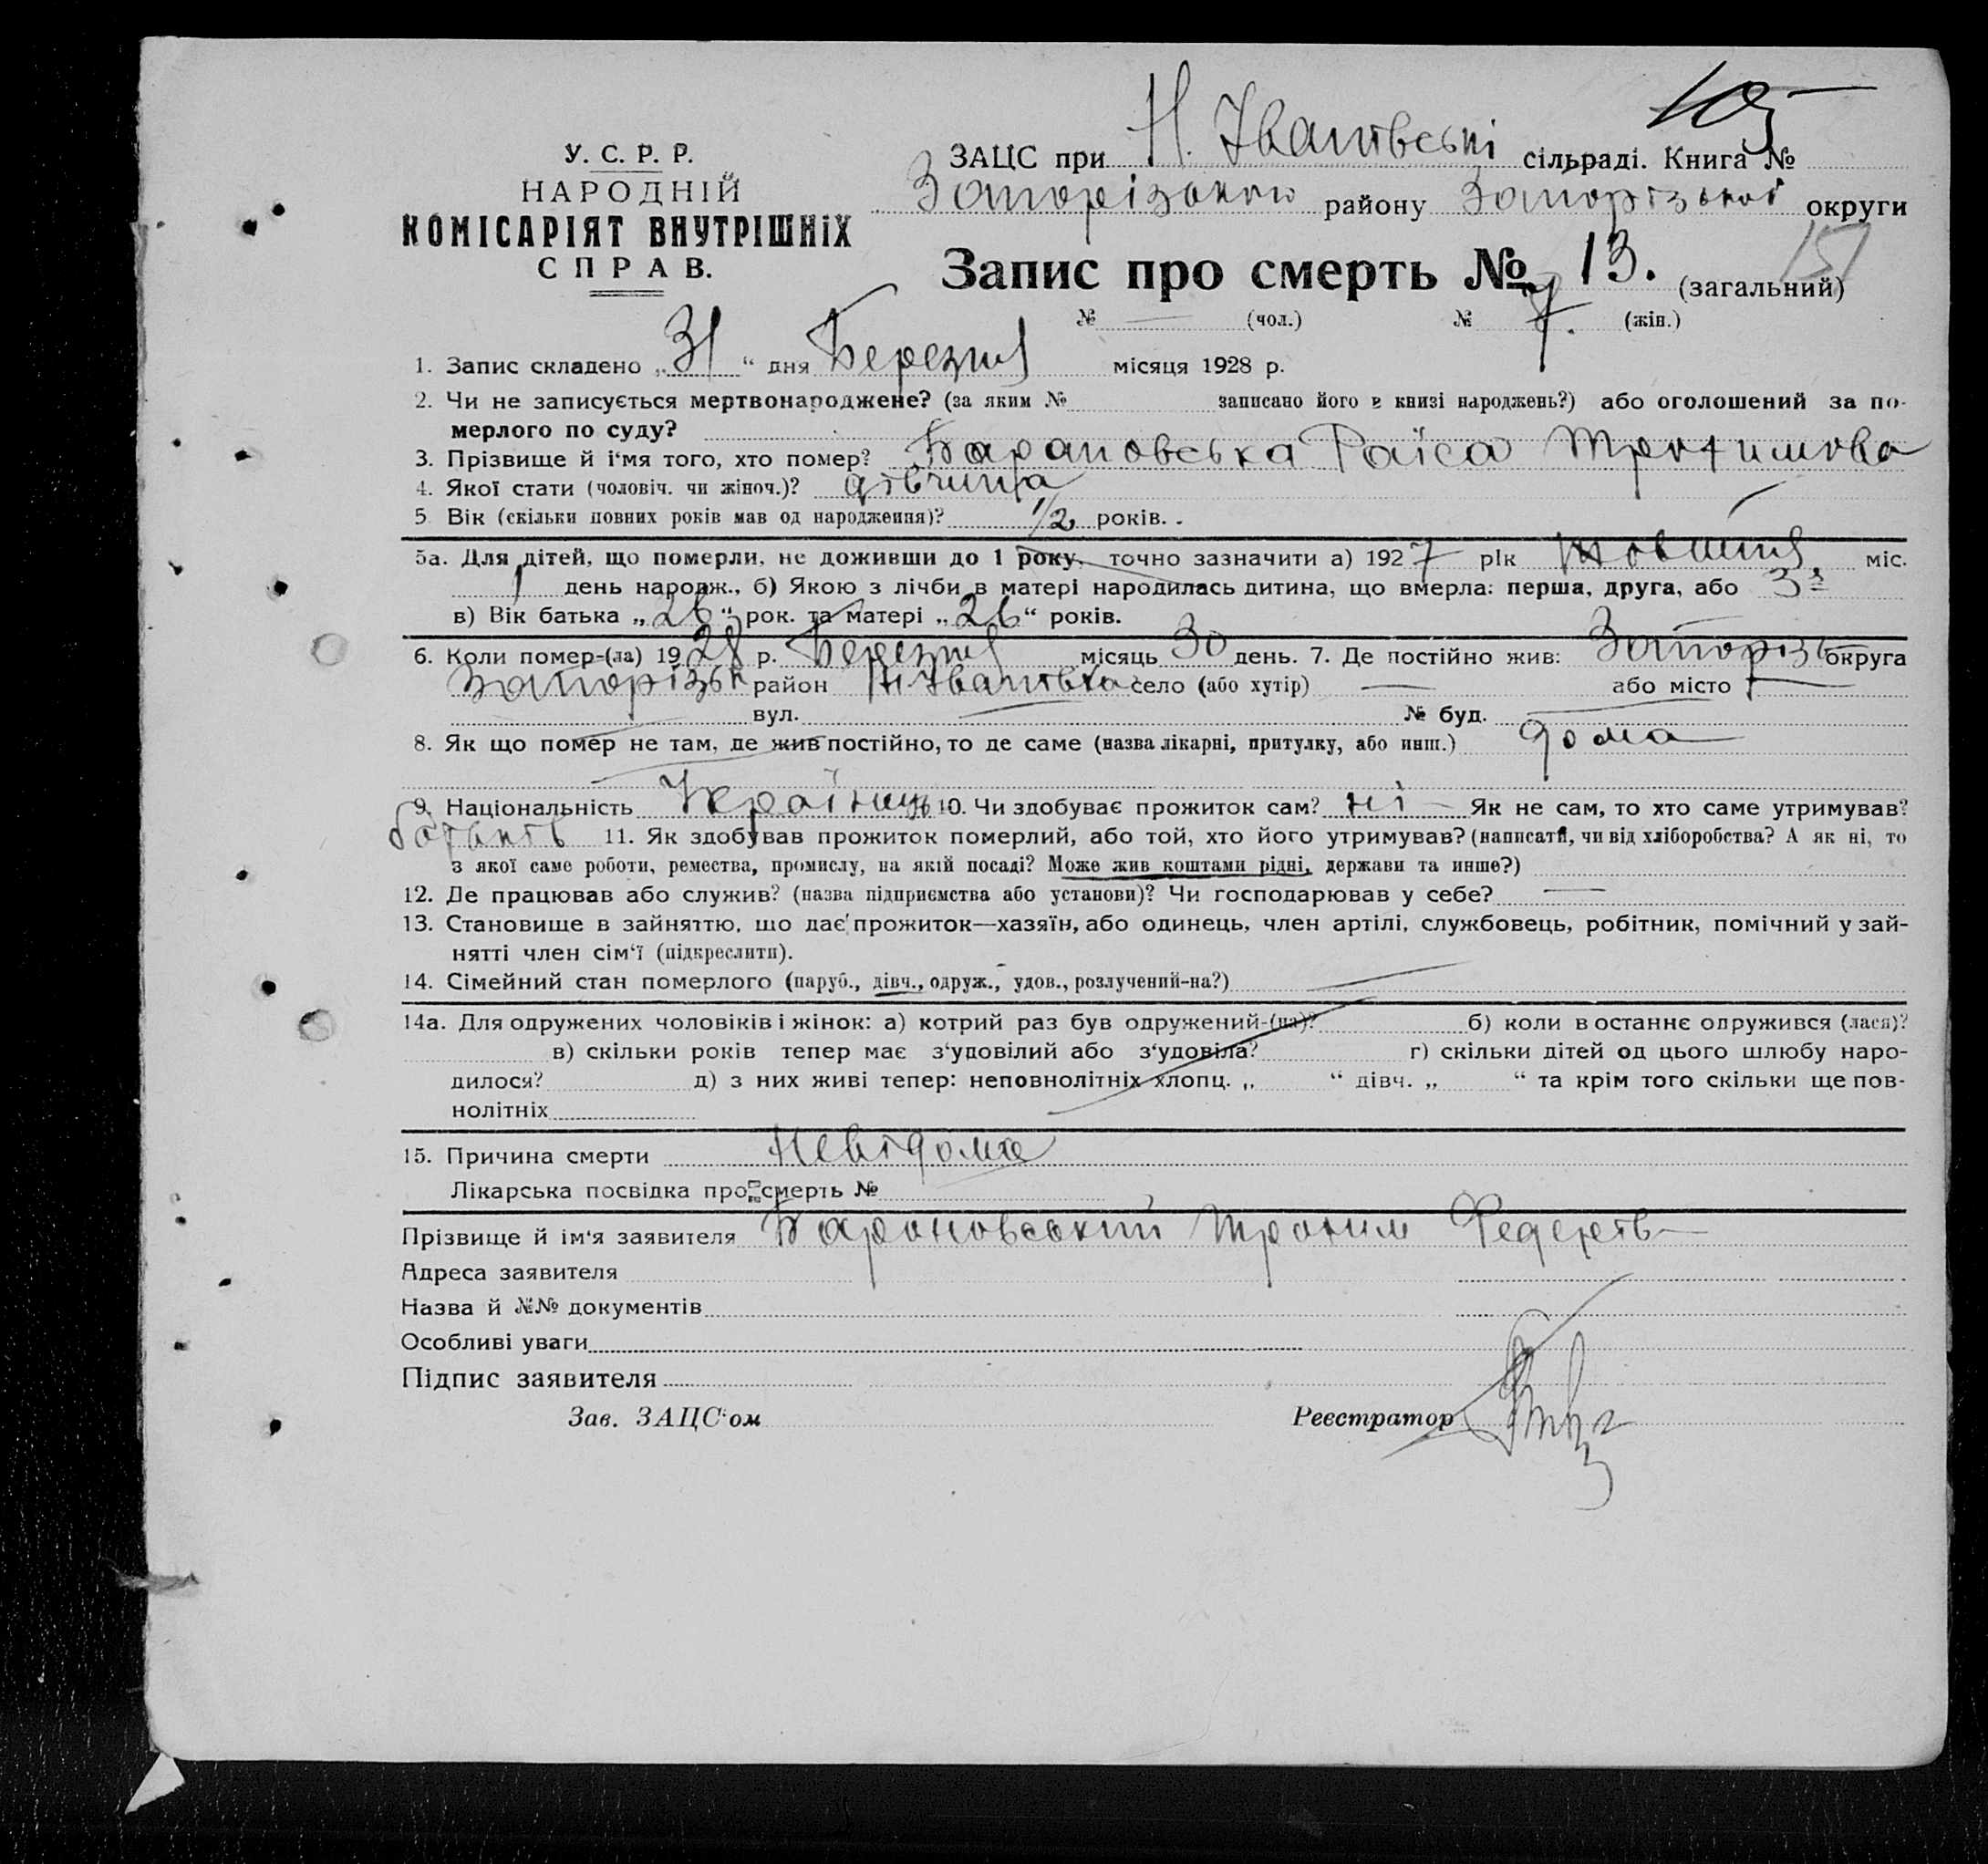 105
У. С. Р. Р.
НАРОДНІЙ
КОМІСАРІЯТ ВНУТРІШНІХ
СПРАВ.
ЗАЦС при Н. Іванівські сільраді. Книга №
Запорізького району Запорізької округи
Запис про смерть № 13. (загальний)
151
№ — (чол.) № 7. (жін.)
1. Запис складено „31“ дня Березня місяця 1928 р.
2. Чи не записується мертвонароджене? (за яким № записано його в книзі народжень?) або оголошений за по-
мерлого по суду?
3. Прізвище й і‘мя того, хто помер? Барановська Раїса Трохимова
4. Якої стати (чоловіч. чи жіноч.)? дівчина
5 Вік (скільки повних років мав од народження)? 1/2 років.
5а. Для дітей, що померли, не доживши до 1 року, точно зазначити а) 1927 рік Жовтня міс.
1 день народж., б) Якою з лічби в матері народилась дитина, що вмерла: перша, друга, або 3
в) Вік батька „26“ рок. та матері „26“ років.
6. Коли помер-(ла) 1928 р. Березня місяць 30 день. 7. Де постійно жив: Запорізь округа
Запорізьк район Н Іванівка село (або хутір) — або місто —
вул. № буд.
8. Як що помер не там, де жив постійно, то де саме (назва лікарні, притулку, або инш.) дома
9. Національність Українць 10. Чи здобуває прожиток сам? ні — Як не сам, то хто саме утримував?
батьків 11. Як здобував прожиток померлий, або той, хто його утримував? (написати, чи від хліборобства? А як ні, то
з якої саме роботи, ремества, промислу, на якій посаді? Може жив коштами рідні, держави та инше?)
12. Де працював або служив? (назва підприємства або установи)? Чи господарював у себе? —
13. Становище в зайняттю, що дає прожиток—хазяїн, або одинець, член артілі, службовець, робітник, помічний у зай-
нятті член сім‘ї (підкреслити).
14. Сімейний стан померлого (паруб., дівч., одруж., удов., розлучений-на?)
14а. Для одружених чоловіків і жінок: а) котрий раз був одружений-(на)? б) коли в останнє одружився (лася)?
в) скільки років тепер має з‘удовілий або з‘удовіла? г) скільки дітей од цього шлюбу наро-
дилося? д) з них живі тепер: неповнолітніх хлопц. „ “ дівч. „ “ та крім того скільки ще пов-
нолітніх
15. Причина смерти Невідома
Лікарська посвідка про смерть №
Прізвище й ім‘я заявителя Барановський Трохим Федорів
Адреса заявителя
Назва й №№ документів
Особливі уваги
Підпис заявителя
Зав. ЗАЦС‘ом Реєстратор